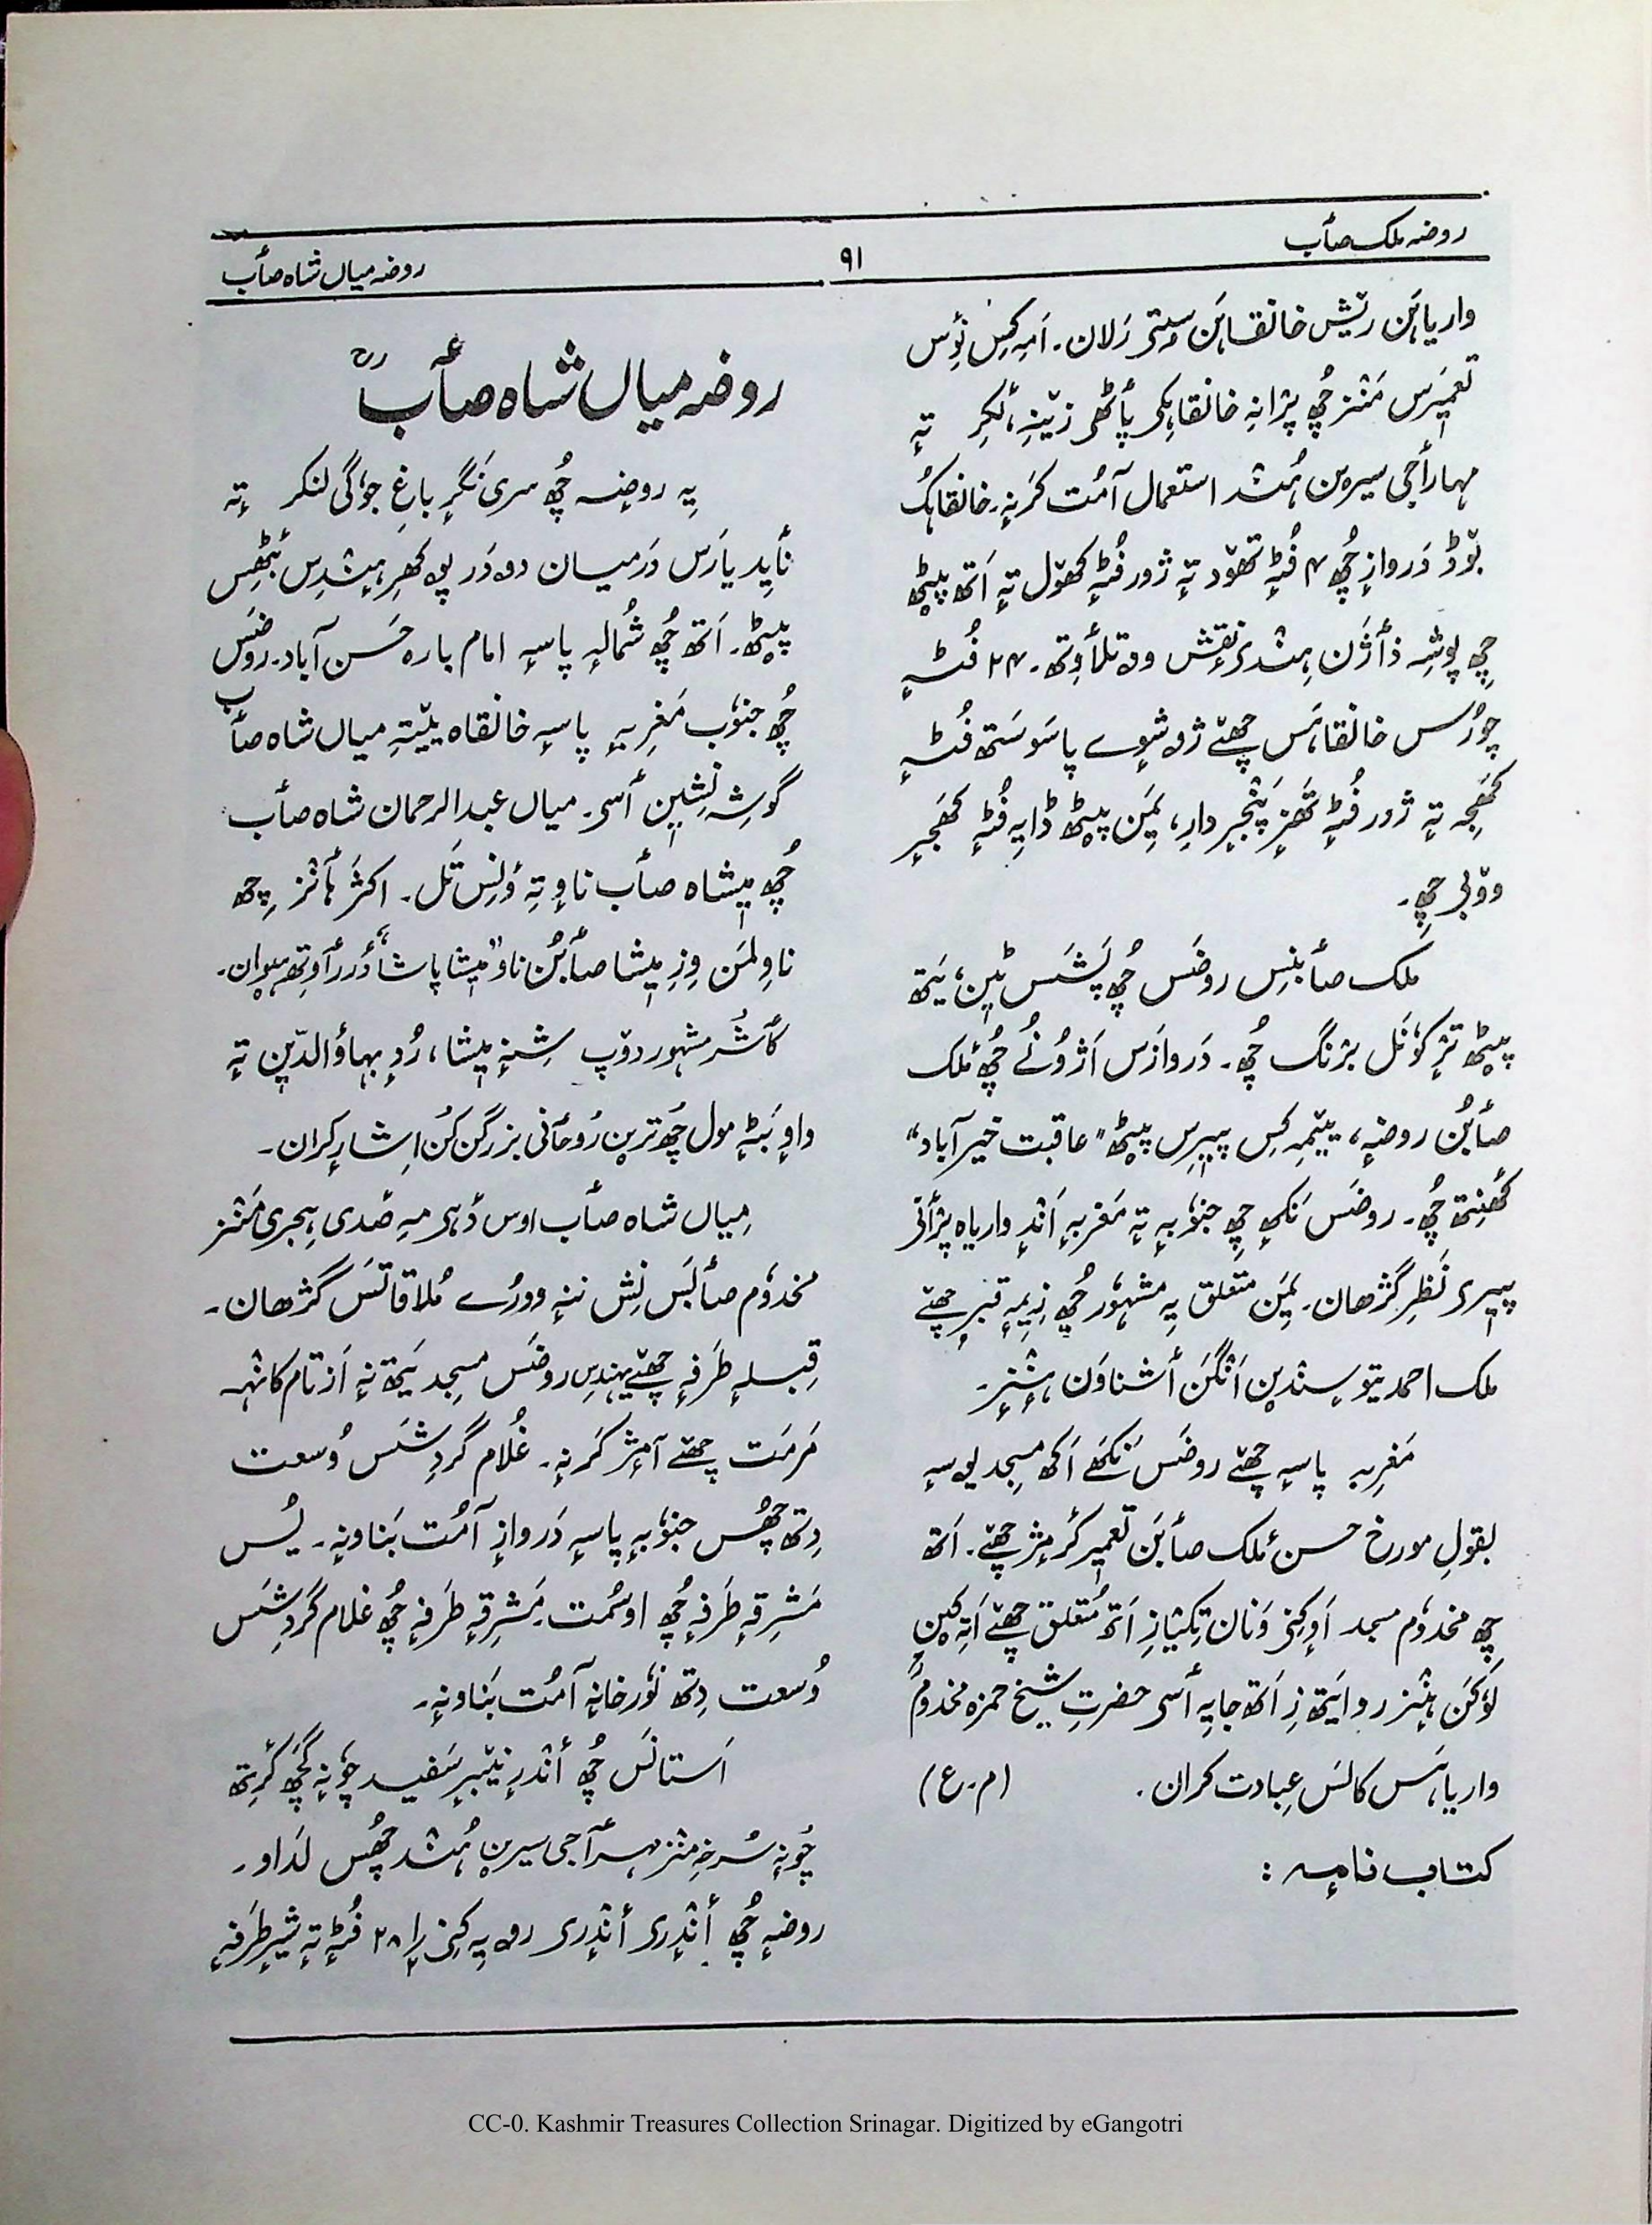 روضہ ملک صأب
۹۱
روضہ میاں شاہ صأب
واریاہَن ریٚش خانقاہَن سٟتۍ رَلان۔ اَمہِ کِس نٔوِس
تعمیٖرَس مَنٛز چُھ پرٛانہِ خانقاہکۍ پأٹھۍ زیٚنہِ، لٔکرِ تہٕ
مہارأجی سیرِن ہُنٛد استعمال آمُت کَرنہٕ۔ خانقاہُک
بوٚڈ دَروازٕ چُھ ۴ فُٹہٕ تھوٚد تہٕ ژور فُٹہٕ کھوٚل تہٕ اَتھ پیٚٹھ
چِھ پوشہٕ ڈأژَن ہِنٛدۍ نقٕش ووتلأوِتھ۔ ۲۴ فُٹہٕ
چورُس خانقاہَس چھےٚ ژۄشوَے پاسَو سَتھ فُٹہٕ
کھَجہِ تہٕ ژور فُٹہٕ تھَزِ پَنٛجرِ دارِ، یِمَن پیٚٹھ ڈایہِ فُٹہٕ کھَجہِ
ووٚبرِ چھِ۔
مَلک صأبنِس روضَس چُھ پَشَس ٹیٖن، یَتھ
پیٚٹھ ترٛ کوٗنَل برٛنگ چُھ۔ دَروازَس اَژوُنُے چُھ مَلک
صأبُن روضہٕ، ییٚمہِ کِس پیٖرِس پیٚٹھ "عاقبت خیر آباد"
کھٔنِتھ چُھ۔ روضَس نَکھہٕ چِھ جنوٗبہٕ تہٕ مَغربہٕ اَنٛدٕ واریاہ پرٛأنۍ
پیٖرۍ نَظرِ گژھان۔ یِمَن متعلق یہِ مشہوٗر چُھ زِ یِمہٕ قبرٕ چھےٚ
ملک احمد یتو سٕندیٖن اَنٛگَن أشناوَن ہٕنٛزٕ۔
مَغرِبہٕ پاسہٕ چھےٚ روضَس نَکھے اَکھ مسجد یوسہٕ
بقولِ مورخ حسن مَلک صأبَن تعمیٖر کٔرمٕژ چھےٚ۔ اَتھ
چِھ مخدوٗم مسجد اَوکِنۍ وَنان تِکیازِ اَتھ مُتعلق چھےٚ اَتہِ کیٖن
لوٗکَن ہٕنٛز روایَتھ زِ اَتھ جایہِ أسۍ حضرتِ شیخ حمزہ مخدوٗمؒ
واریاہَس کالَس عِبادت کران۔ (م۔ع)
کتاب نامہٕ :
روضہ میاں شاہ صأبؒ
یہِ روضہٕ چُھ سری نَگرٕ باغِ جوٗگی لنکر تہٕ
نأیِد یارَس دَرمیان دۄدَر پۄکھرِ ہِنٛدِس بٔٹھِس
پیٚٹھ۔ اَتھ چُھ شُمالہٕ پاسہٕ امام بارہ حَسن آباد۔ روضَس
چُھ جنوٗب مَغرِبہٕ پاسہٕ خانقاہ ییٚتہِ میاں شاہ صأب
گوشہٕ نشیٖن أسۍ۔ میاں عبدالرحمان شاہ صأب
چُھ میٖشاہ صأب ناوٕ تہِ وَنِس تَل۔ اکثَر ہأنٛز چِھ
ناوِ لمَن وِزِ میٖشا صأبُن ناو "میٖشا پاشا" دَررأوِتھ ہیوان۔
کأشُر مشہور دوٚپ شِنہِ میٖشا، رُدِ بہاؤالدّیٖن تہٕ
واوٕ بَٹہٕ مول چُھ ترین رُوحأنی بزرگن کُن اِشارٕ کران۔
میاں شاہ صأب اوس دٔہمہِ صَدی ہجری مَنٛز
مخدوٗم صأبَس نِش ننہٕ وورُے مُلاقاتَس گژھان۔
قِبلہٕ طَرفہٕ چھےٚ یہنٛدِس روضَس مسجد یَتھ نہٕ اَزتام کانٛہہ
مَرمَت چھےٚ آمٕژ کَرنہٕ۔ غُلام گردِشَس وُسعت
دِتھ چُھس جنوٗبہٕ پاسہٕ دَروازٕ آمُت بَناونہٕ۔ یُس
مَشرِقہٕ طَرفہٕ چُھ اوسمُت۔ مَشرِقہٕ طَرفہٕ چُھ غلام گَردِشَس
وُسعت دِتھ نوٗرخانہٕ آمُت بَناونہٕ۔
اَستانَس چُھ أنٛدرٕ نیٚبرٕ سَفید چوٗنہٕ گَچھ کٔرِتھ
چوٗنہٕ سُرخہٕ منٛز مہرأجی سیرِن ہُنٛد چُھس لَداو۔
روضہٕ چُھ أنٛدرۍ أنٛدرۍ رۄیہِ کِنۍ ۲۸ فُٹہٕ تہٕ شیرِ طَرفہٕ
CC-0. Kashmir Treasures Collection Srinagar. Digitized by eGangotri